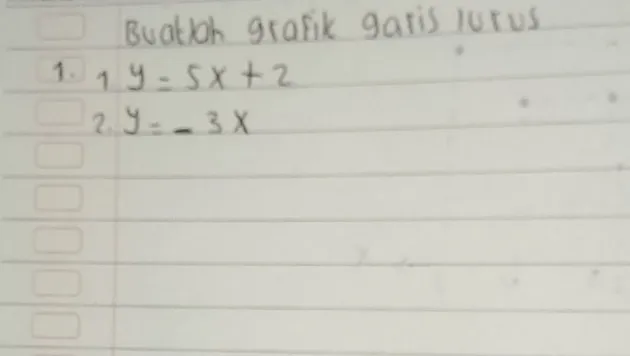 Buatlah grafik garis lurus
1. 1 y = 5x + 2
2. y = - 3x